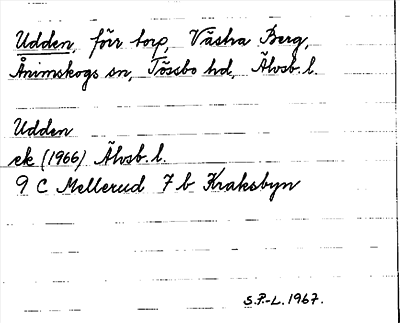 Udden, förr torp, Västra Berg,
Ånimskogs sn, Tössbo hd, Älvsb. l.
Udden
ek (1966) Älvsb. l.
9 C Mellerud 7 b Kraksbyn
S.P.-L. 1967.